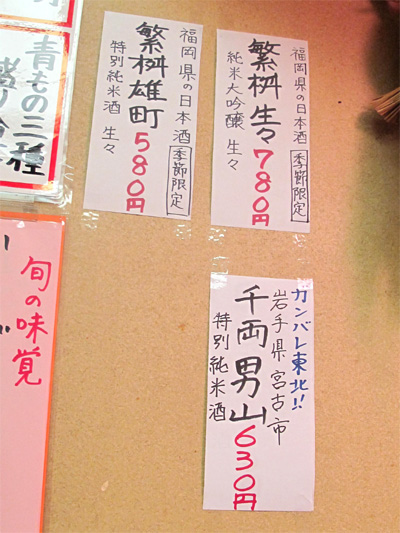 福岡県の日本酒 季節限定
繁桝 生々 780円
純米大吟醸 生々
福岡県の日本酒 季節限定
繁桝 雄町 580円
特別純米酒 生々
ガンバレ東北!!
岩手県宮古市
千両男山 630円
特別純米酒
青もの三種
盛り
旬の味覚